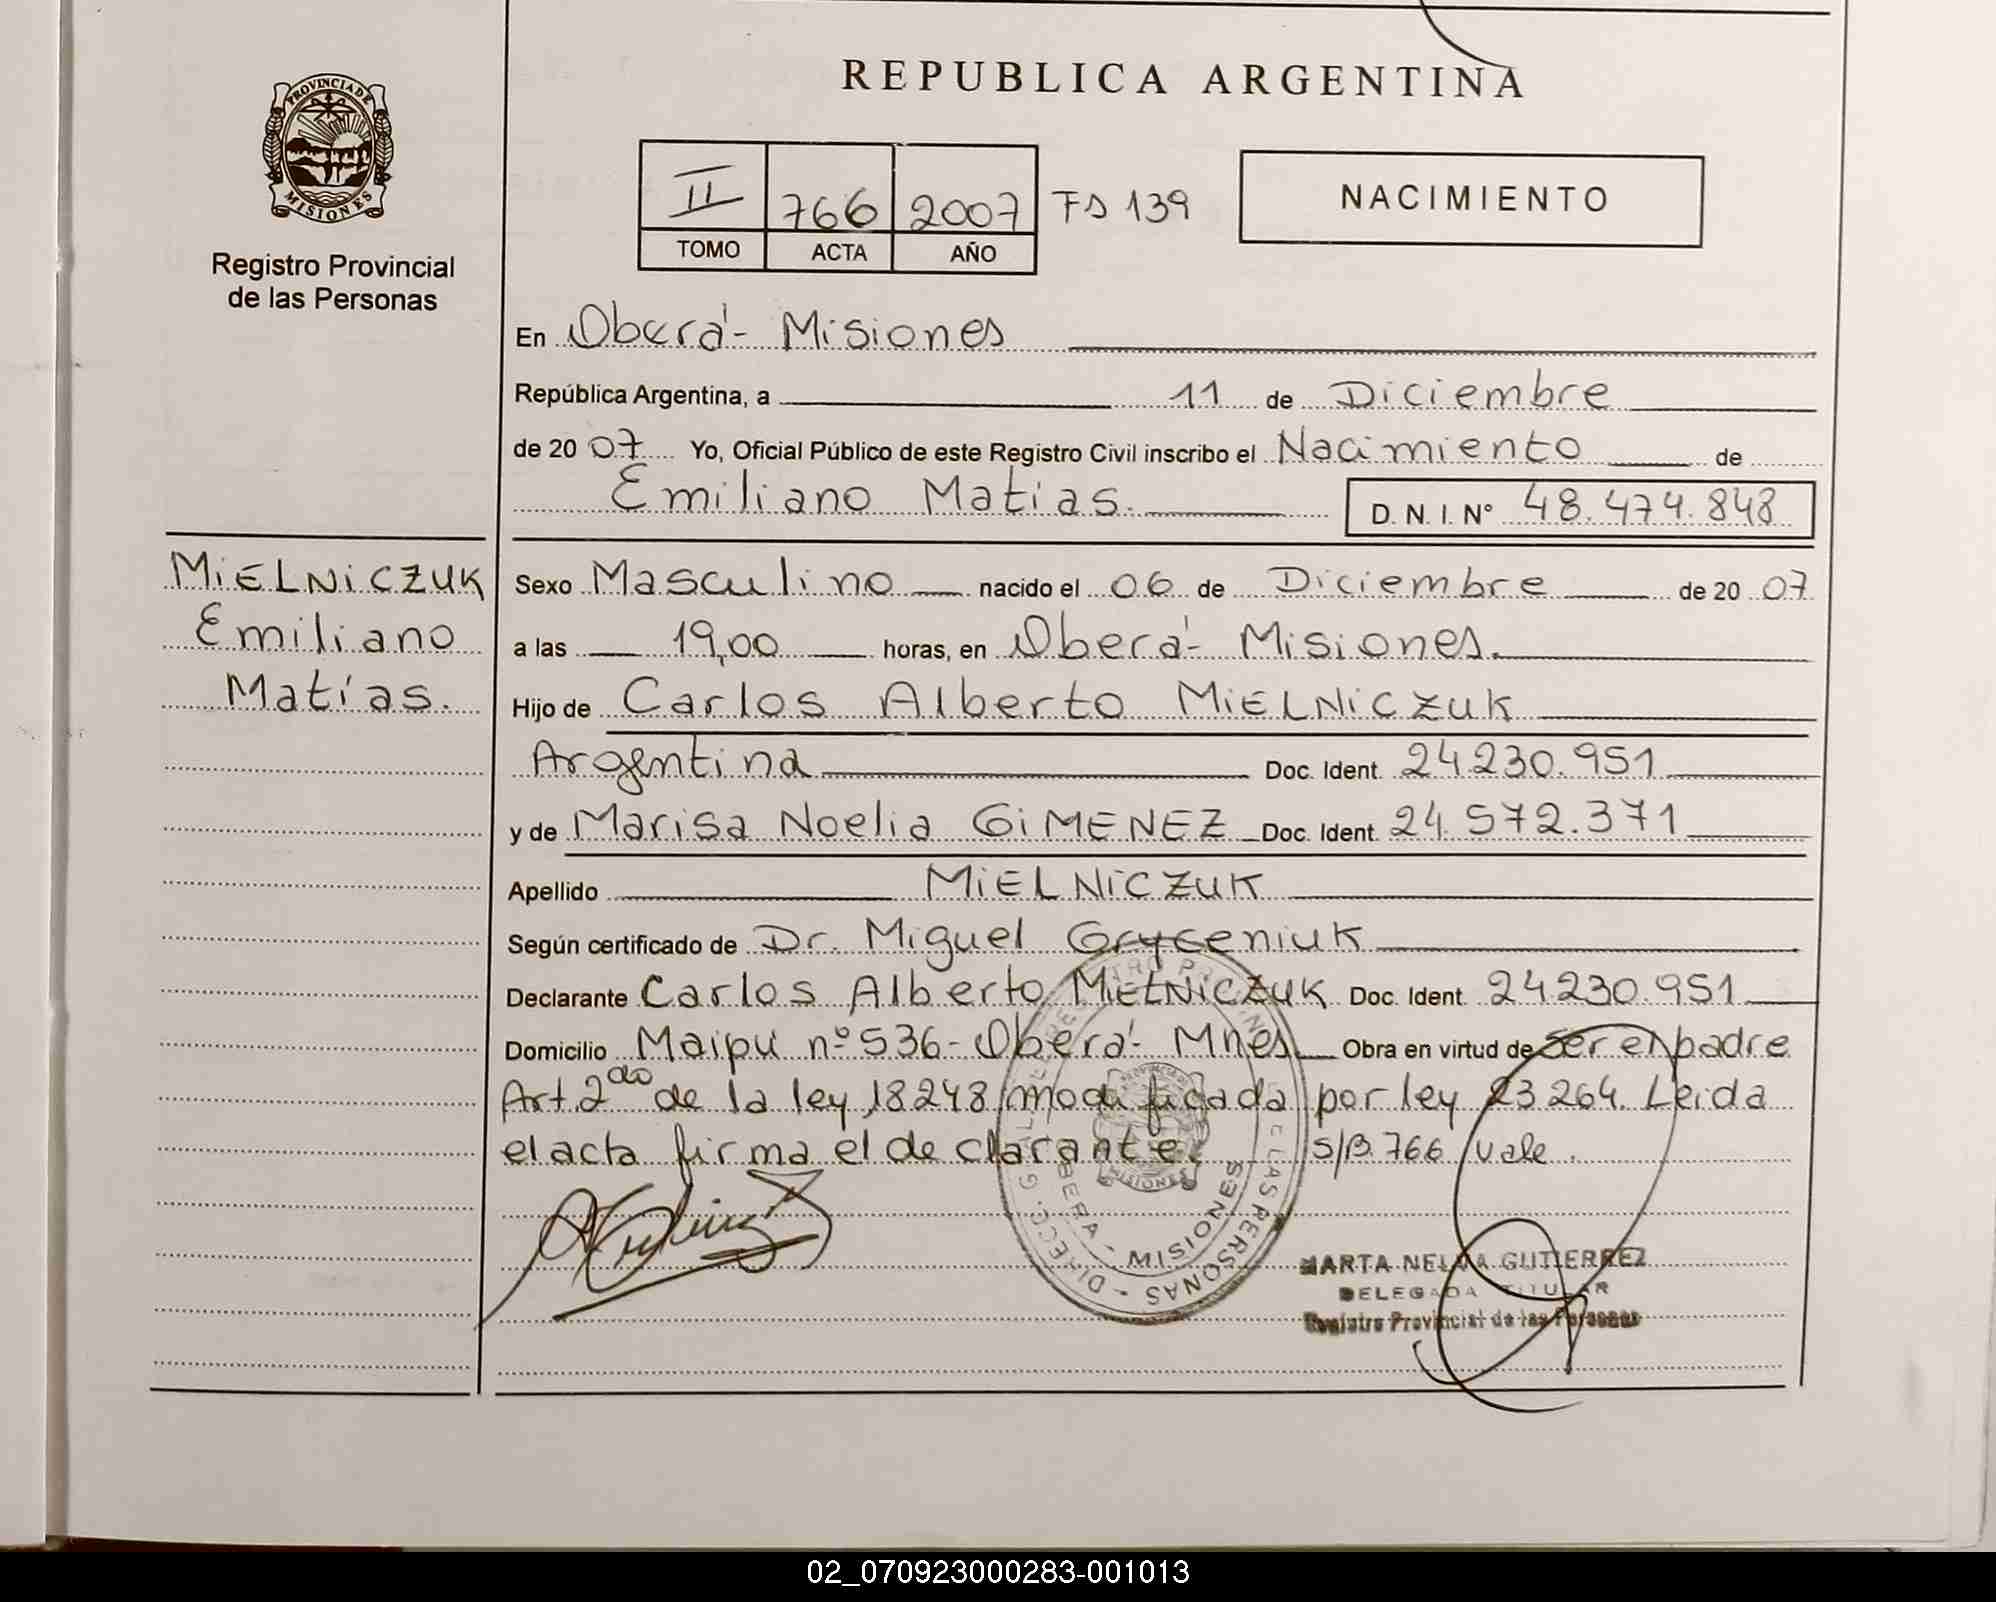 REPUBLICA ARGENTINA
PROVINCIA DE
MISIONES
Registro Provincial
de las Personas
II 766 2007 Fo 139
TOMO ACTA AÑO
NACIMIENTO
En Oberá - Misiones
República Argentina, a 11 de Diciembre
de 20 07 Yo, Oficial Público de este Registro Civil inscribo el Nacimiento de
Emiliano Matías. D. N. I. N° 48.474.848
MiELNiCZUK
Emiliano
Matías.
Sexo Masculino nacido el 06 de Diciembre de 20 07
a las 19,00 horas, en Oberá - Misiones.
Hijo de Carlos Alberto MiELNiCZUK
Argentina Doc. Ident. 24.230.951
y de Marisa Noelia GiMENEZ Doc. Ident. 24.572.371
Apellido MiELNiCZUK
Según certificado de Dr. Miguel Gryceniuk
Declarante Carlos Alberto MiELNiCZUK Doc. Ident. 24.230.951
Domicilio Maipú nº 536 - Oberá - Mnes Obra en virtud de ser el padre
Art. 2do de la ley 18248 modificada por ley 23264. Leida
el acta firma el declarante. S/B. 766 Vale.
MISIONES
OBERA - MISIONES
DE LAS PERSONAS
MARTA NELDA GUTIERREZ
DELEGADA TITULAR
Registro Provincial de las Personas
02_070923000283-001013